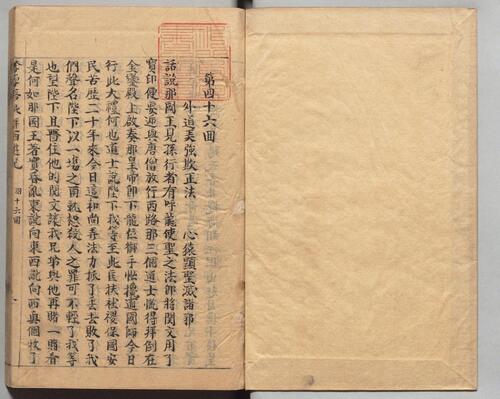 第四十六回
外道弄強欺正法　心猿顯聖滅諸邪
話說那國王見孫行者有呼龍使聖之法即將関文用了
寶印便要遞與唐僧放行西路那三個道士慌得拜倒在
金鑾殿上啟奏那皇帝即下龍位御手忙攙道國師今日
行此大禮何也道士說陛下我等至此匡扶社稷保國安
民苦歷二十年來今日這和尚弄法力抓了丢去敗了我
們聲名陛下以一場之雨就恕殺人之罪可不輕了我等
也望陛下且留住他的関文讓我兄弟與他再賭一賭看
是何如那國王著實昏亂東說向東西說向西真個收了
四十六回